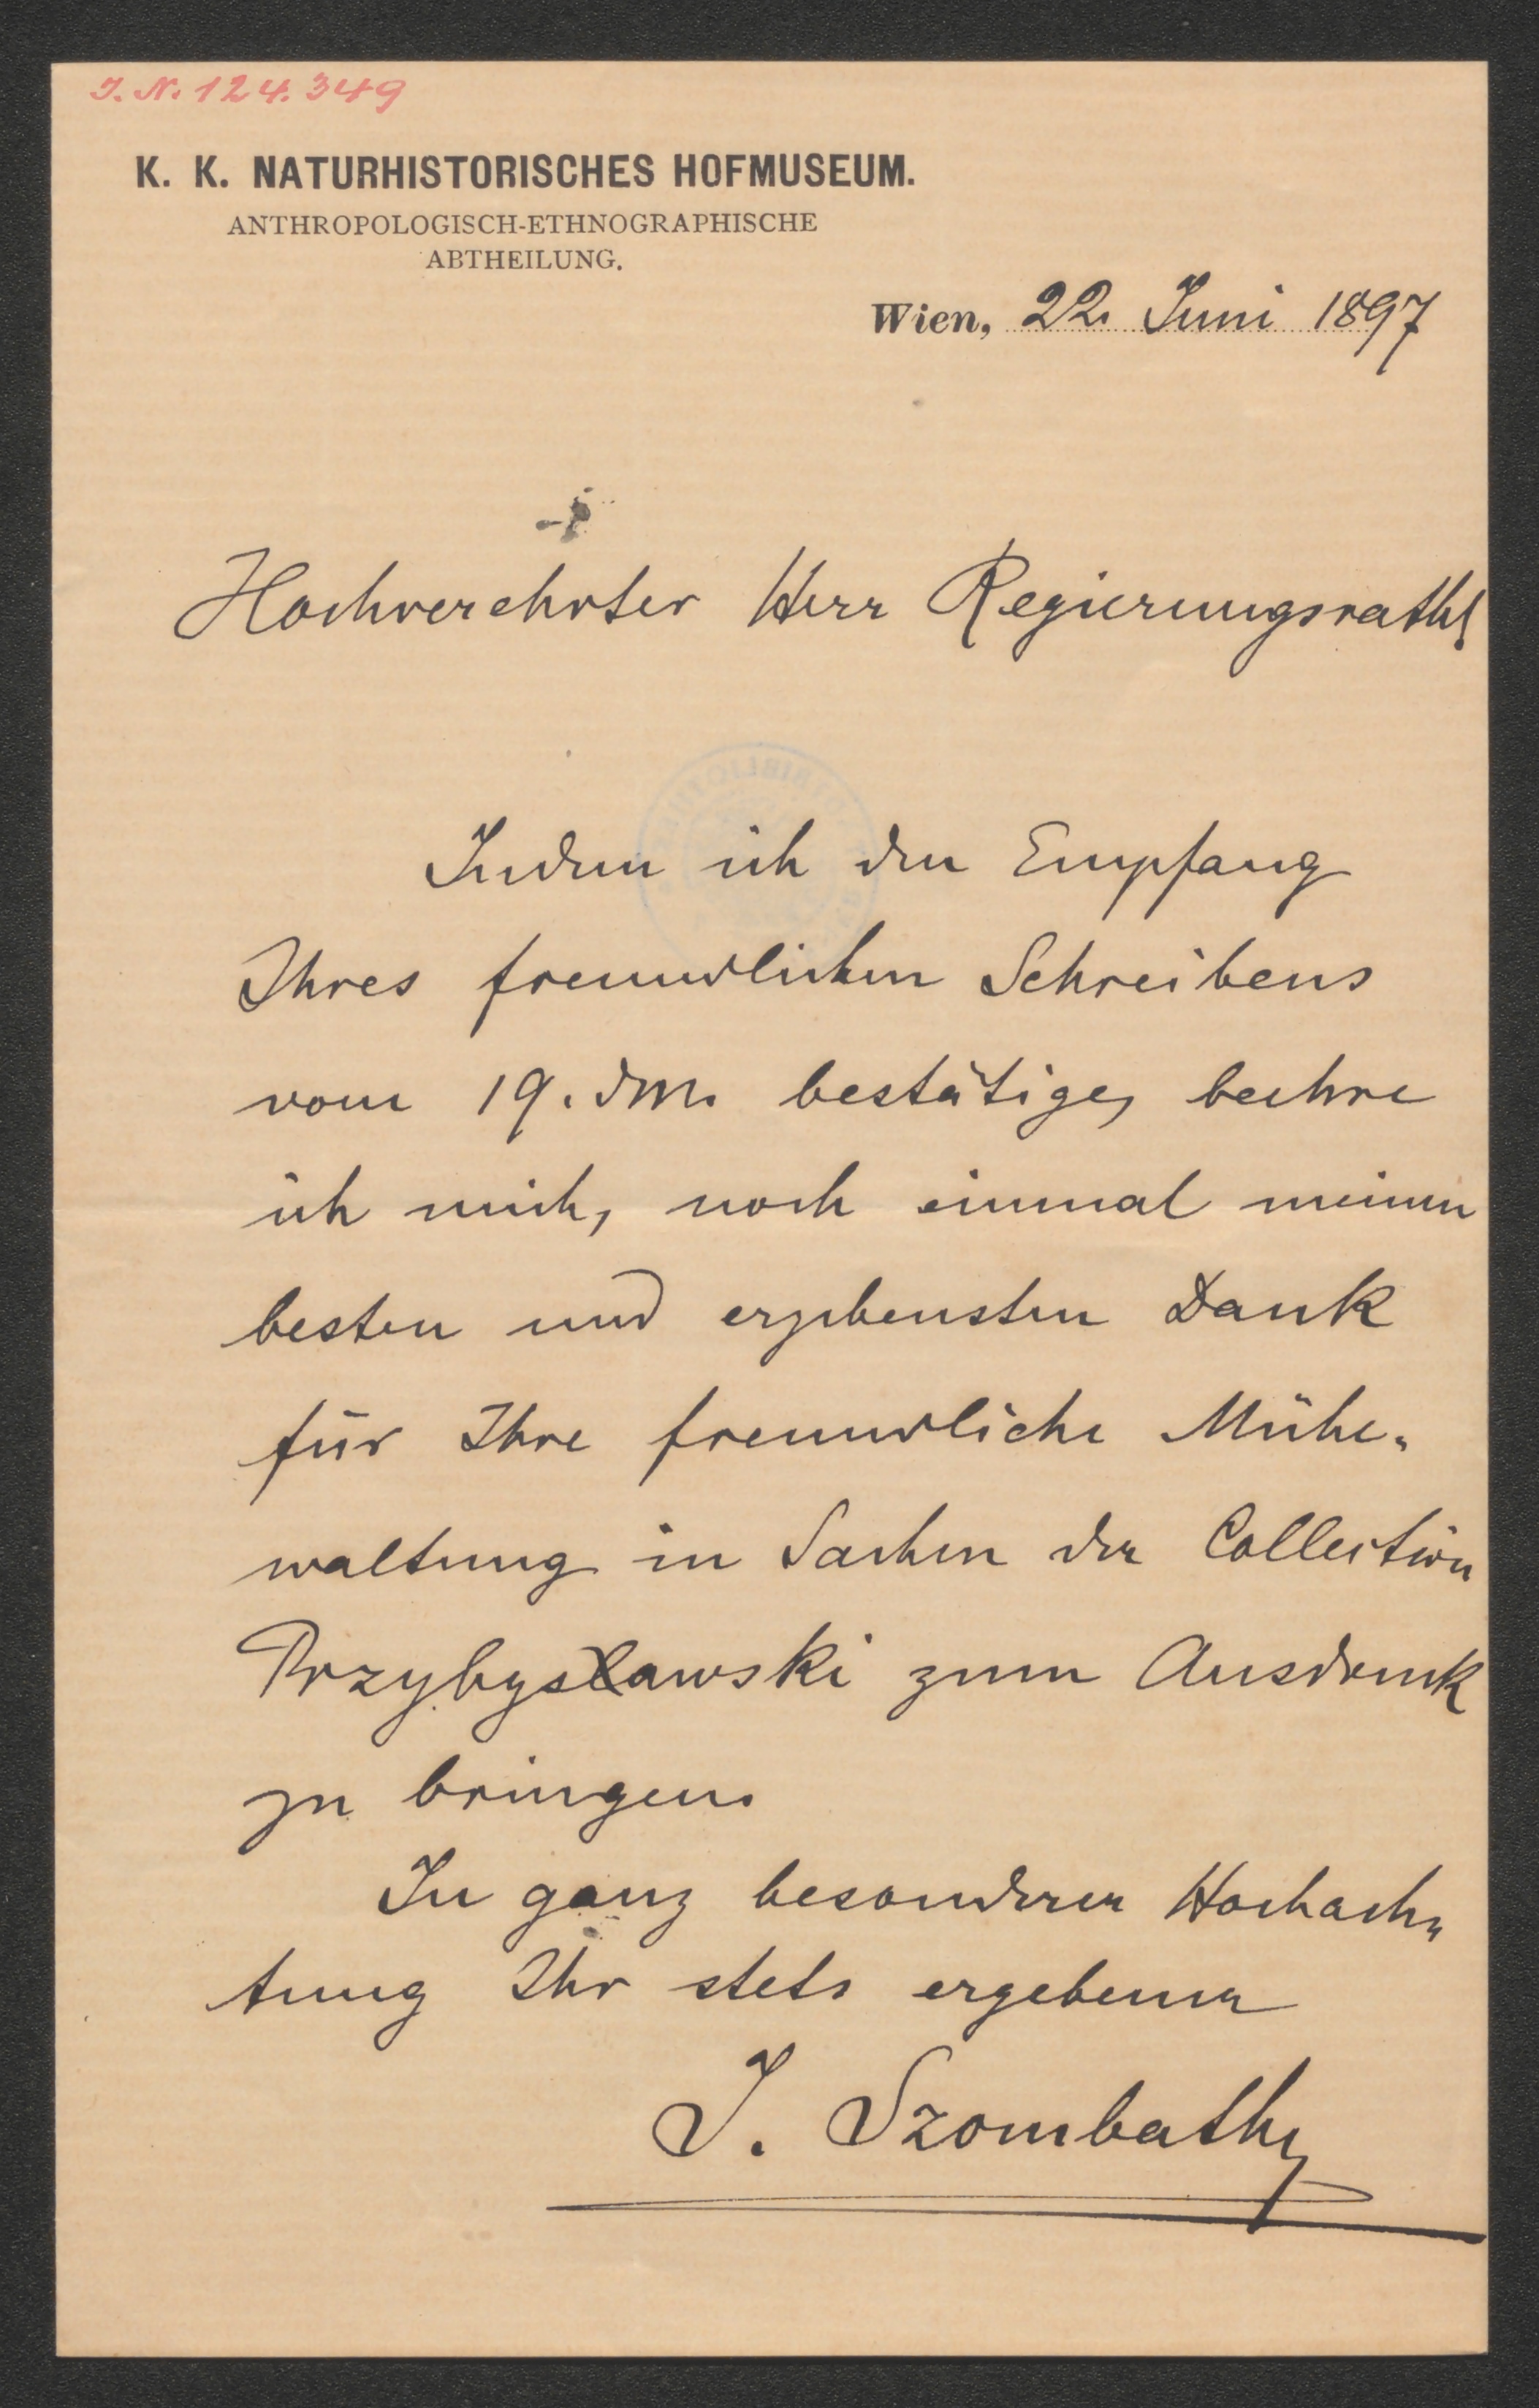 J. N. 124.349
K. K. NATURHISTORISCHES HOFMUSEUM.
ANTHROPOLOGISCH-ETHNOGRAPHISCHE
ABTHEILUNG.
Wien, 22. Juni 1897
Hochverehrter Herr Regierungsrath!
Indem ich den Empfang
Ihres freundlichen Schreibens
vom 19. dM. bestätige, beehre
ich mich, noch einmal meinen
besten und ergebensten Dank
für Ihre freundliche Mühe-
waltung in Sachen der Collection
Przybysławski zum Ausdruck
zu bringen.
In ganz besonderer Hochach-
tung Ihr stets ergebener
J. Szombathy